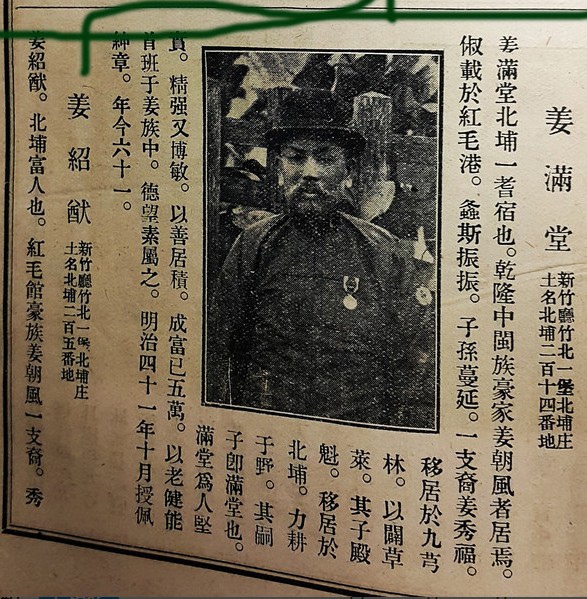 姜滿堂
新竹廳竹北一堡北埔庄
土名北埔二百十四番地
姜滿堂北埔一耆宿也。乾隆中閩族豪家姜朝風者居焉。
俶載於紅毛港。螽斯振振。子孫蔓延。一支裔姜秀福。
移居於九芎
林。以闢草
萊。其子殿
魁。移居於
北埔。力耕
于野。其嗣
子卽滿堂也。
滿堂為人堅
貞。精强又博敏。以善居積。成富已五萬。以老健能
首班于姜族中。德望素屬之。明治四十一年十月授佩
紳章。年今六十一。
姜紹猷
新竹廳竹北一堡北埔庄
土名北埔二百五番地
姜紹猷。北埔富人也。紅毛館豪族姜朝風一支裔。秀